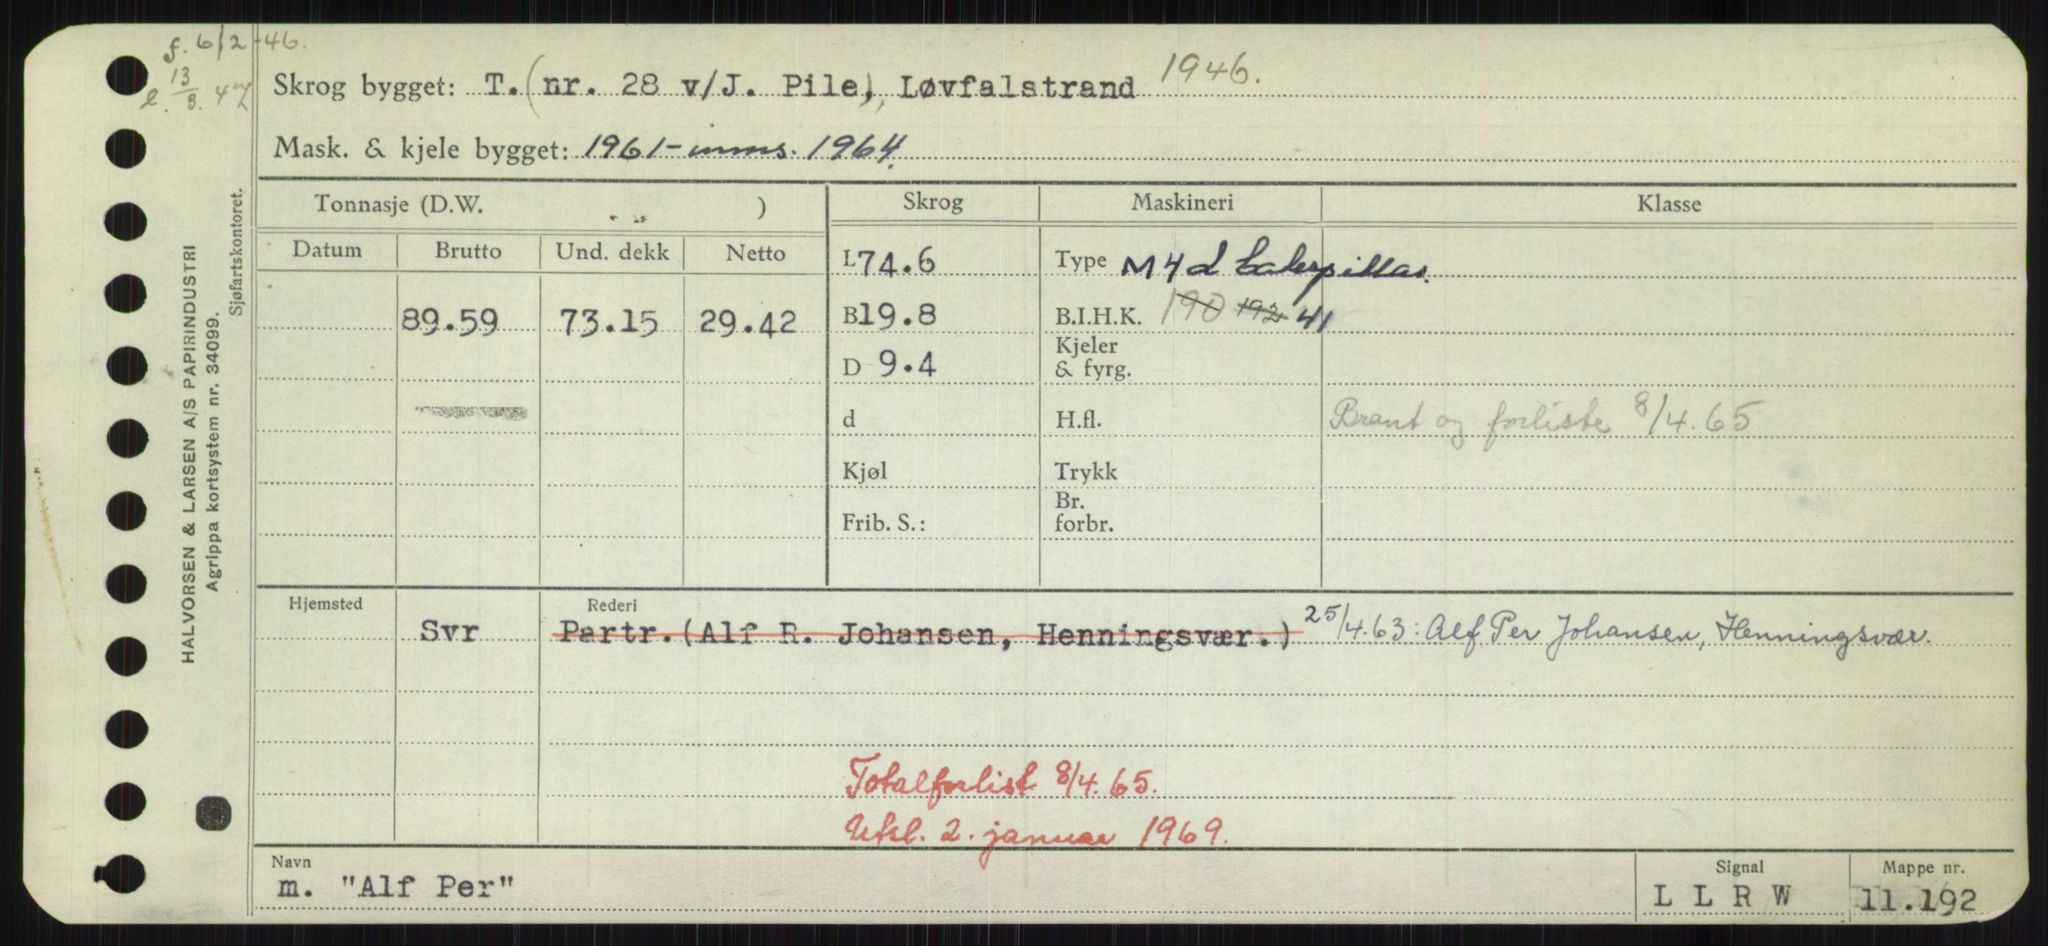 f. 6/2-46.
e. 13/3. 47
Skrog bygget: T. (nr. 28 v/J. Pile), Løvfalstrand 1946.
Mask. & kjele bygget: 1961-inms. 1964.
HALVORSEN & LARSEN A/S PAPIRINDUSTRI
Agrippa kortsystem nr. 34099.
Sjøfartskontoret.
Tonnasje (D.W. ) Skrog Maskineri Klasse
Datum Brutto Und. dekk Netto
L 74.6 Type M 4 d Caterpillar.
89.59 73.15 29.42 B 19.8 B.I.H.K. 190 192 41
D 9.4 Kjeler & fyrg.
d H.fl. Brant og forliste 8/4.65
Kjøl Trykk
Frib. S.: Br. forbr.
Hjemsted Rederi
Svr Partr. (Alf R. Johansen, Henningsvær.) 25/4.63: Alf Per Johansen, Henningsvær.
Totalforlist 8/4.65.
Utsl. 2. januar 1969.
Navn Signal Mappe nr.
m. "Alf Per" L L R W 11.192